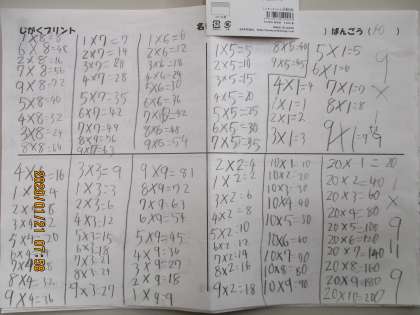 じがくプリント
名
ばんごう(10)
6×8=48
2×8=16
7×8=56
9×8=72
5×8=40
4×8=32
3×8=24
8×8=64
1×7=7
2×7=14
4×7=28
5×7=35
6×7=42
7×7=49
8×7=56
9×7=63
1×6=6
2×6=12
3×6=18
4×6=24
5×6=30
6×6=36
7×6=42
8×6=48
9×6=54
1×5=5
2×5=10
3×5=15
4×5=20
5×5=25
6×5=30
7×5=35
8×5=40
9×5=45
4×1=4
1×1=1
2×1=2
3×1=3
5×1=5
6×1=6
7×1=7
8×1=8
9×1=9
4×4=16
1×4=4
2×4=8
3×4=12
5×4=20
8×4=32
9×4=36
3×3=9
1×3=3
2×3=6
4×3=12
5×3=15
6×3=18
7×3=21
8×3=24
9×3=27
9×9=81
8×9=72
6×9=54
5×9=45
4×9=36
3×9=27
2×9=18
1×9=9
2×2=4
1×2=2
3×2=6
4×2=8
5×2=10
6×2=12
7×2=14
8×2=16
9×2=18
10×1=10
10×2=20
10×3=30
10×4=40
10×5=50
10×6=60
10×8=80
20×1=20
20×2=40
20×3=60
20×4=80
20×5=100
20×6=120
20×7=140
20×8=160
20×9=180
20×10=200
2020/01/21 07:38